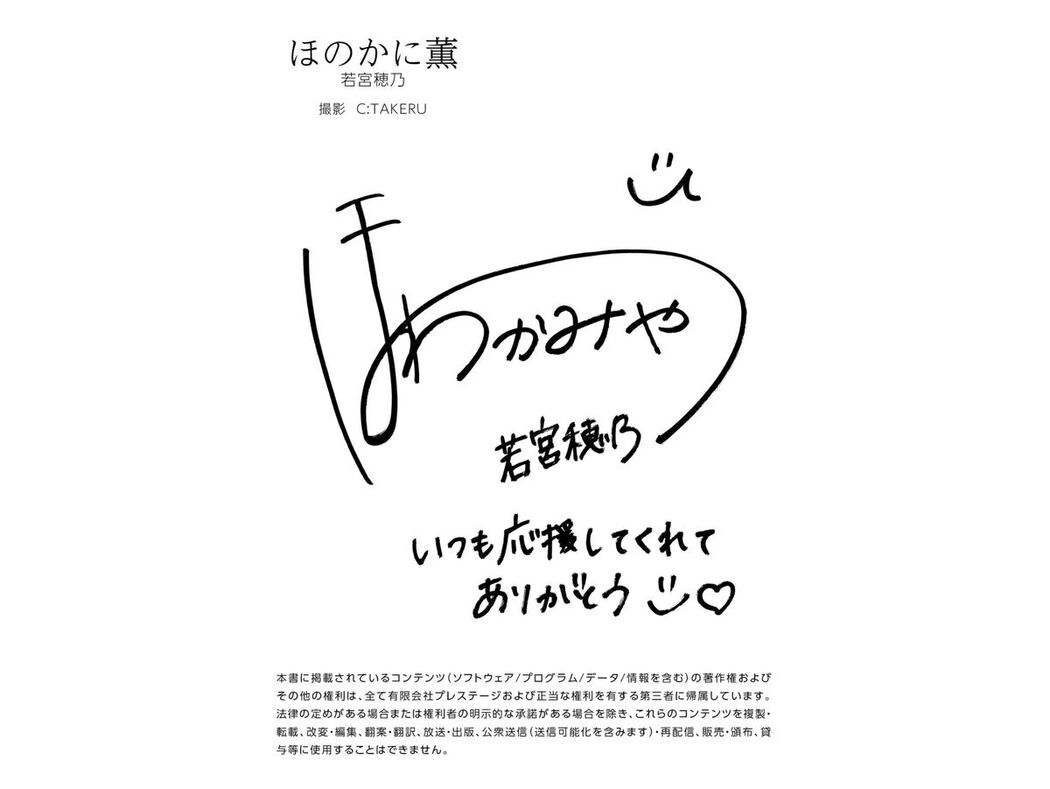 ほのかに薫
若宮穂乃
撮影 C:TAKERU
ほ わかみや
若宮穂乃
いつも応援してくれて
ありがとう
本書に掲載されているコンテンツ(ソフトウェア/プログラム/データ/情報を含む)の著作権および
その他の権利は、全て有限会社プレステージおよび正当な権利を有する第三者に帰属しています。
法律の定めがある場合または権利者の明示的な承諾がある場合を除き、これらのコンテンツを複製・
転載、改変・編集、翻案・翻訳、放送・出版、公衆送信(送信可能化を含みます)・再配信、販売・頒布、貸
与等に使用することはできません。